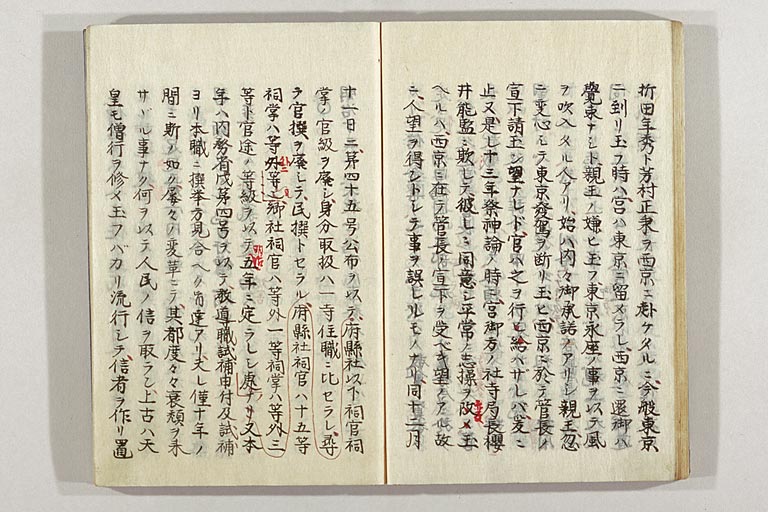 折田年秀ト芳村正秉ヲ西京ニ赴ケタルニ今般東京
ニ到リ玉フ時ハ宮ハ東京ニ留メラレ西京ニ還御ハ
覺束ナシト親王ノ嫌ヒ玉フ東京永座ノ事ヲ以テ風
ヲ吹入タル人アリ始ハ内々御承諾ノアリシ親王忽
ニ変心シテ東京發駕ヲ断リ玉ヒ西京ニ於テ管長ノ
宣下請玉ン望ナレド官ハ之ヲ行ヒ給ハザレバ茲ニ
止又是レ十三年祭神論ノ時ニ宮御方ノ社寺局長櫻
井能監ニ欺レテ彼レニ同意シ平常ノ志操ヲ改メ玉
ヘルハ西京ニ在テ管長ノ宣下ヲ受ベキ望ミアル故
ニ人望ヲ得ントシテ事ヲ誤レルモノナリ同十二月
十一日ニ第四十五号公布ヲ以テ府縣社以下祠官祠
掌ノ官級ヲ廃シ身分取扱ハ一寺住職ニ比セラレ尋
ヲ官撰ヲ廃シテ民撰トセラル府縣社祠官ハ十五等
祠掌ハ等外二等郷社祠官ハ等外一等祠掌ハ等外三
等ト官途ノ等級ヲ以テ五年ニ定ラレシ處ナリ又本
年ハ内務省戊第四号ヲ以テ教導職試補申付及試補
ヨリ本職ニ撰挙方見合ヘク肯達アリ夫レ僅十年ノ
間ニ斯ノ如ク屡々ノ変革ニテ其都度々々衰頽ヲ来
サヾル事ナク何ヲ以テ人民ノ信ヲ取ラン上古ハ天
皇モ僧行ヲ修メ玉フバカリ流行シテ信者ヲ作リ置